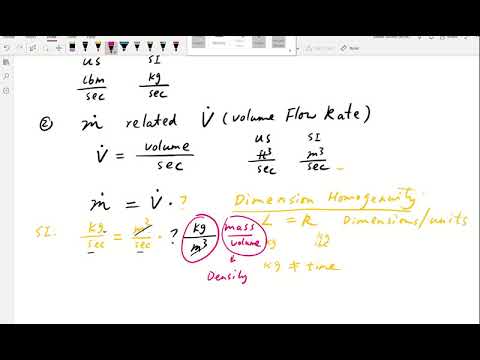 US SI
lbm/sec kg/sec
② ṁ related V̇ (volume Flow Rate)
US SI
V̇ = volume/sec ft³/sec m³/sec
ṁ = V̇ · ? Dimension Homogenuity
L = R Dimensions/units
SI. kg/sec = m³/sec · ? kg/m³ mass/volume kg
kg ≠ time
Density